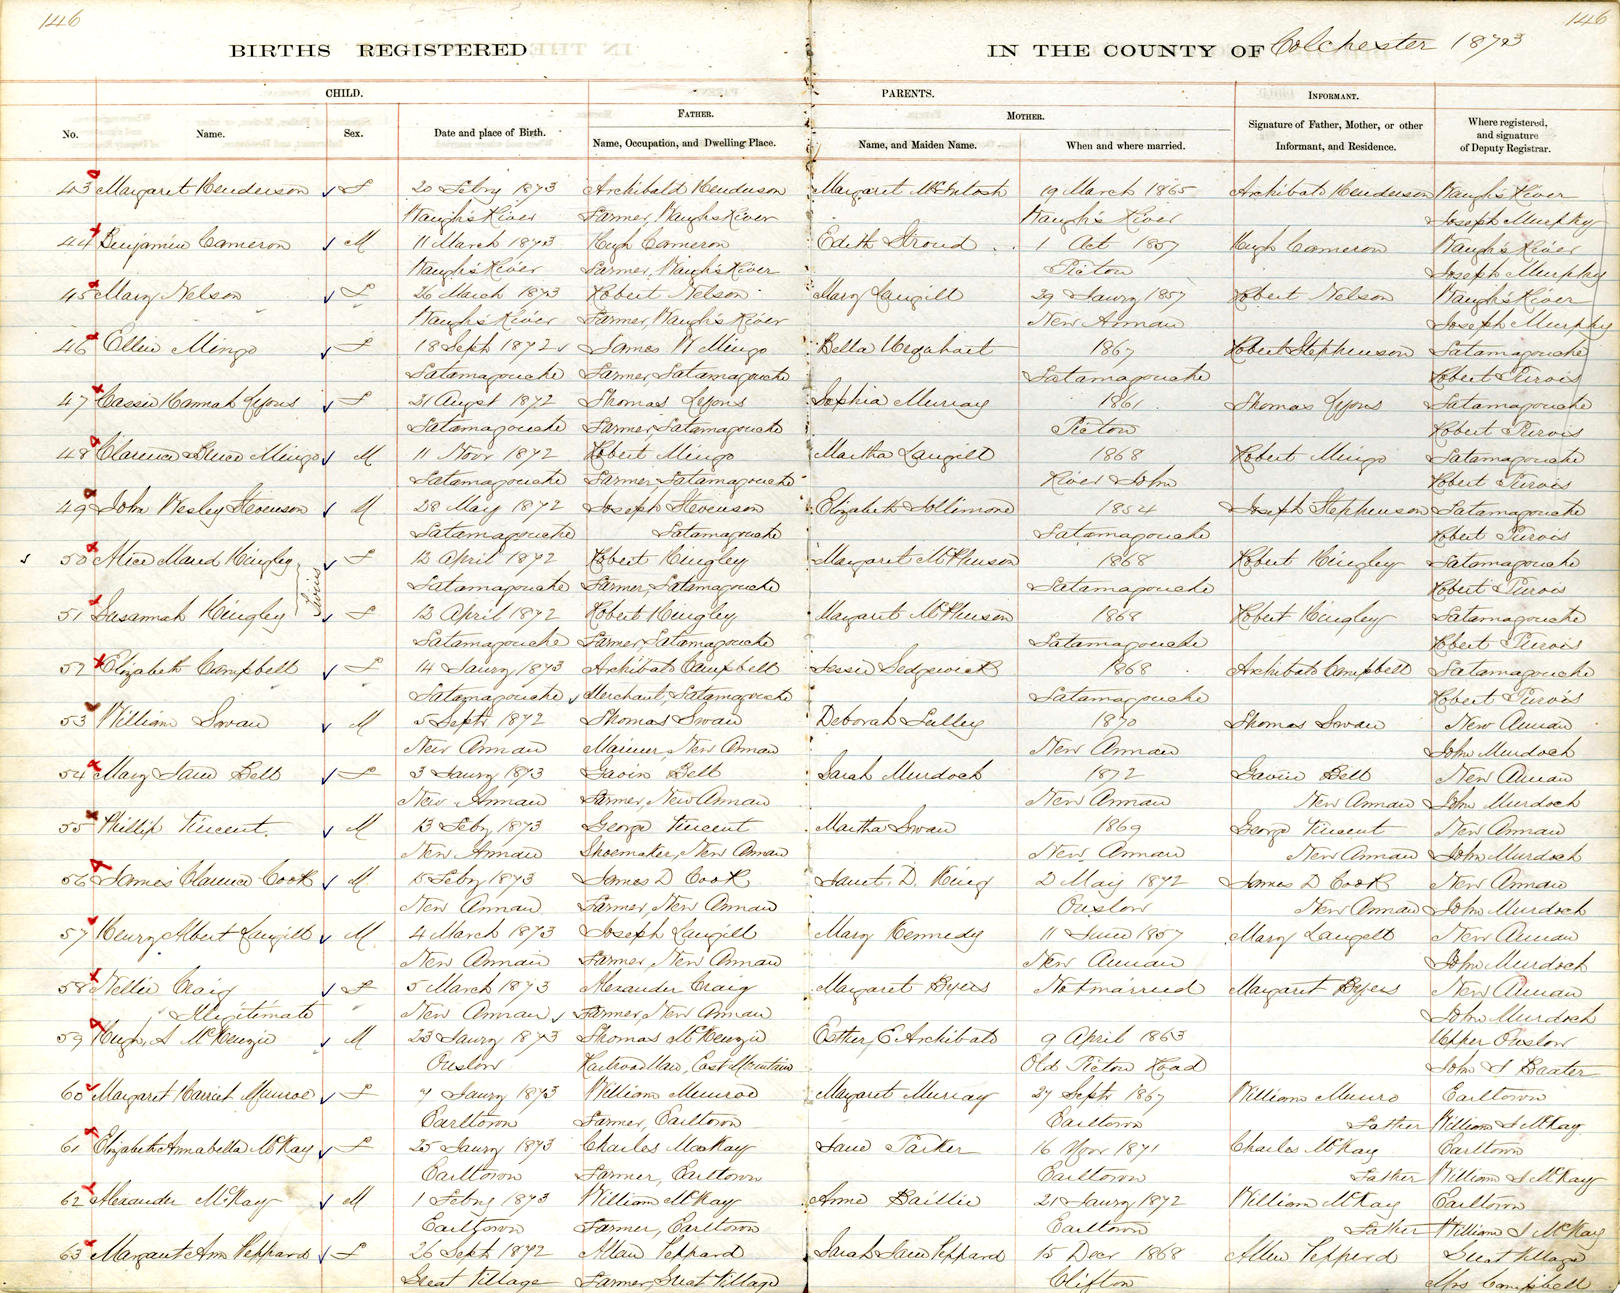 146
146
BIRTHS REGISTERED IN THE COUNTY OF Colchester 1873
CHILD. PARENTS. INFORMANT.
FATHER. MOTHER.
No. Name. Sex. Date and place of Birth. Name, Occupation, and Dwelling Place. Name, and Maiden Name. When and where married. Signature of Father, Mother, or other Informant, and Residence. Where registered, and signature of Deputy Registrar.
43 Margaret Henderson F 20 Feby 1873 Archibald Henderson Margaret McIntosh 19 March 1865 Archibald Henderson Waugh's River
Waugh's River Farmer, Waugh's River Waugh's River Joseph Murphy
44 Benjamin Cameron M 11 March 1873 Hugh Cameron Edith Stroud 1 Oct 1857 Hugh Cameron Waugh's River
Waugh's River Farmer, Waugh's River Picton Joseph Murphy
45 Mary Nelson F 26 March 1873 Robert Nelson Mary Langill 29 Janry 1857 Robert Nelson Waugh's River
Waugh's River Farmer, Waugh's River New Annan Joseph Murphy
46 Ellen Mingo F 18 Sept 1872 James W Mingo Bella Urquhart 1867 Robert Stephenson Tatamagouche
Tatamagouche Farmer, Tatamagouche Tatamagouche Robert Purvis
47 Cassie Hannah Lyons F 21 Augst 1872 Thomas Lyons Sophia Murray 1861 Thomas Lyons Tatamagouche
Tatamagouche Farmer, Tatamagouche Picton Robert Purvis
48 Clarence Bruce Mingo M 11 Novr 1872 Robert Mingo Martha Langill 1868 Robert Mingo Tatamagouche
Tatamagouche Farmer, Tatamagouche River John Robert Purvis
49 John Wesley Stevenson M 28 May 1872 Joseph Stevenson Elizabeth Tollimore 1854 Joseph Stephenson Tatamagouche
Tatamagouche Tatamagouche Tatamagouche Robert Purvis
50 Alice Maud Hingley F 12 April 1872 Robert Hingley Margaret McPherson 1868 Robert Hingley Tatamagouche
Twins
Tatamagouche Farmer, Tatamagouche Tatamagouche Robert Purvis
51 Susannah Hingley F 12 April 1872 Robert Hingley Margaret McPherson 1868 Robert Hingley Tatamagouche
Tatamagouche Farmer, Tatamagouche Tatamagouche Robert Purvis
52 Elizabeth Campbell F 14 Janry 1873 Archibald Campbell Jessie Sedgwick 1868 Archibald Campbell Tatamagouche
Tatamagouche Merchant, Tatamagouche Tatamagouche Robert Purvis
53 William Swan M 5 Sept 1872 Thomas Swan Deborah Tulley 1870 Thomas Swan New Annan
New Annan Mariner, New Annan New Annan John Murdoch
54 Mary Jane Bell F 3 Janry 1873 Gavin Bell Sarah Murdoch 1872 Gavin Bell New Annan
New Annan Farmer, New Annan New Annan New Annan John Murdoch
55 Phillip Vincent. M 13 Feby 1873 George Vincent Martha Swan 1869 George Vincent New Annan
New Annan Shoemaker, New Annan New Annan New Annan John Murdoch
56 James Clarence Cook M 15 Feby 1873 James D Cook Janet. D. King 2 May 1872 James D Cook New Annan
New Annan Farmer, New Annan Onslow New Annan John Murdoch
57 Henry Albert Langill M 4 March 1873 Joseph Langill Mary Kennedy 11 June 1857 Mary Langell New Annan
New Annan Farmer, New Annan New Annan John Murdoch
58 Nellie Craig F 5 March 1873 Alexander Craig Margaret Byers Not married Margaret Byers New Annan
Illigitimate New Annan Farmer, New Annan John Murdoch
59 Hugh, S McKenzie M 23 Janry 1873 Thomas McKenzie Esther, E Archibald 9 April 1863 Upper Onslow
Onslow Railroad Man, East Mountain Old Picton Road John S Baxter
60 Margaret Harriet Munroe F 7 Janry 1873 William Munroe Margaret Murray 27 Sept 1867 William Munro Earltown
Earltown Farmer, Earltown Earltown Father William S McKay
61 Elizabeth Annabella McKay F 25 Janry 1873 Charles MacKay Jane Parker 16 Novr 1871 Charles McKay Earltown
Earltown Farmer, Earltown Earltown Father William S McKay
62 Alexander McKay M 1 Feby 1873 William McKay Anne Baillie 21 Janry 1872 William McKay Earltown
Earltown Farmer, Earltown Earltown Father William S McKay
63 Margaret Ann Peppard F 26 Sept 1872 Allan Peppard Sarah Jane Peppard 15 Decr 1868 Allen Pepperd Great Village
Great Village Farmer, Great Village Clifton Mrs Campbell